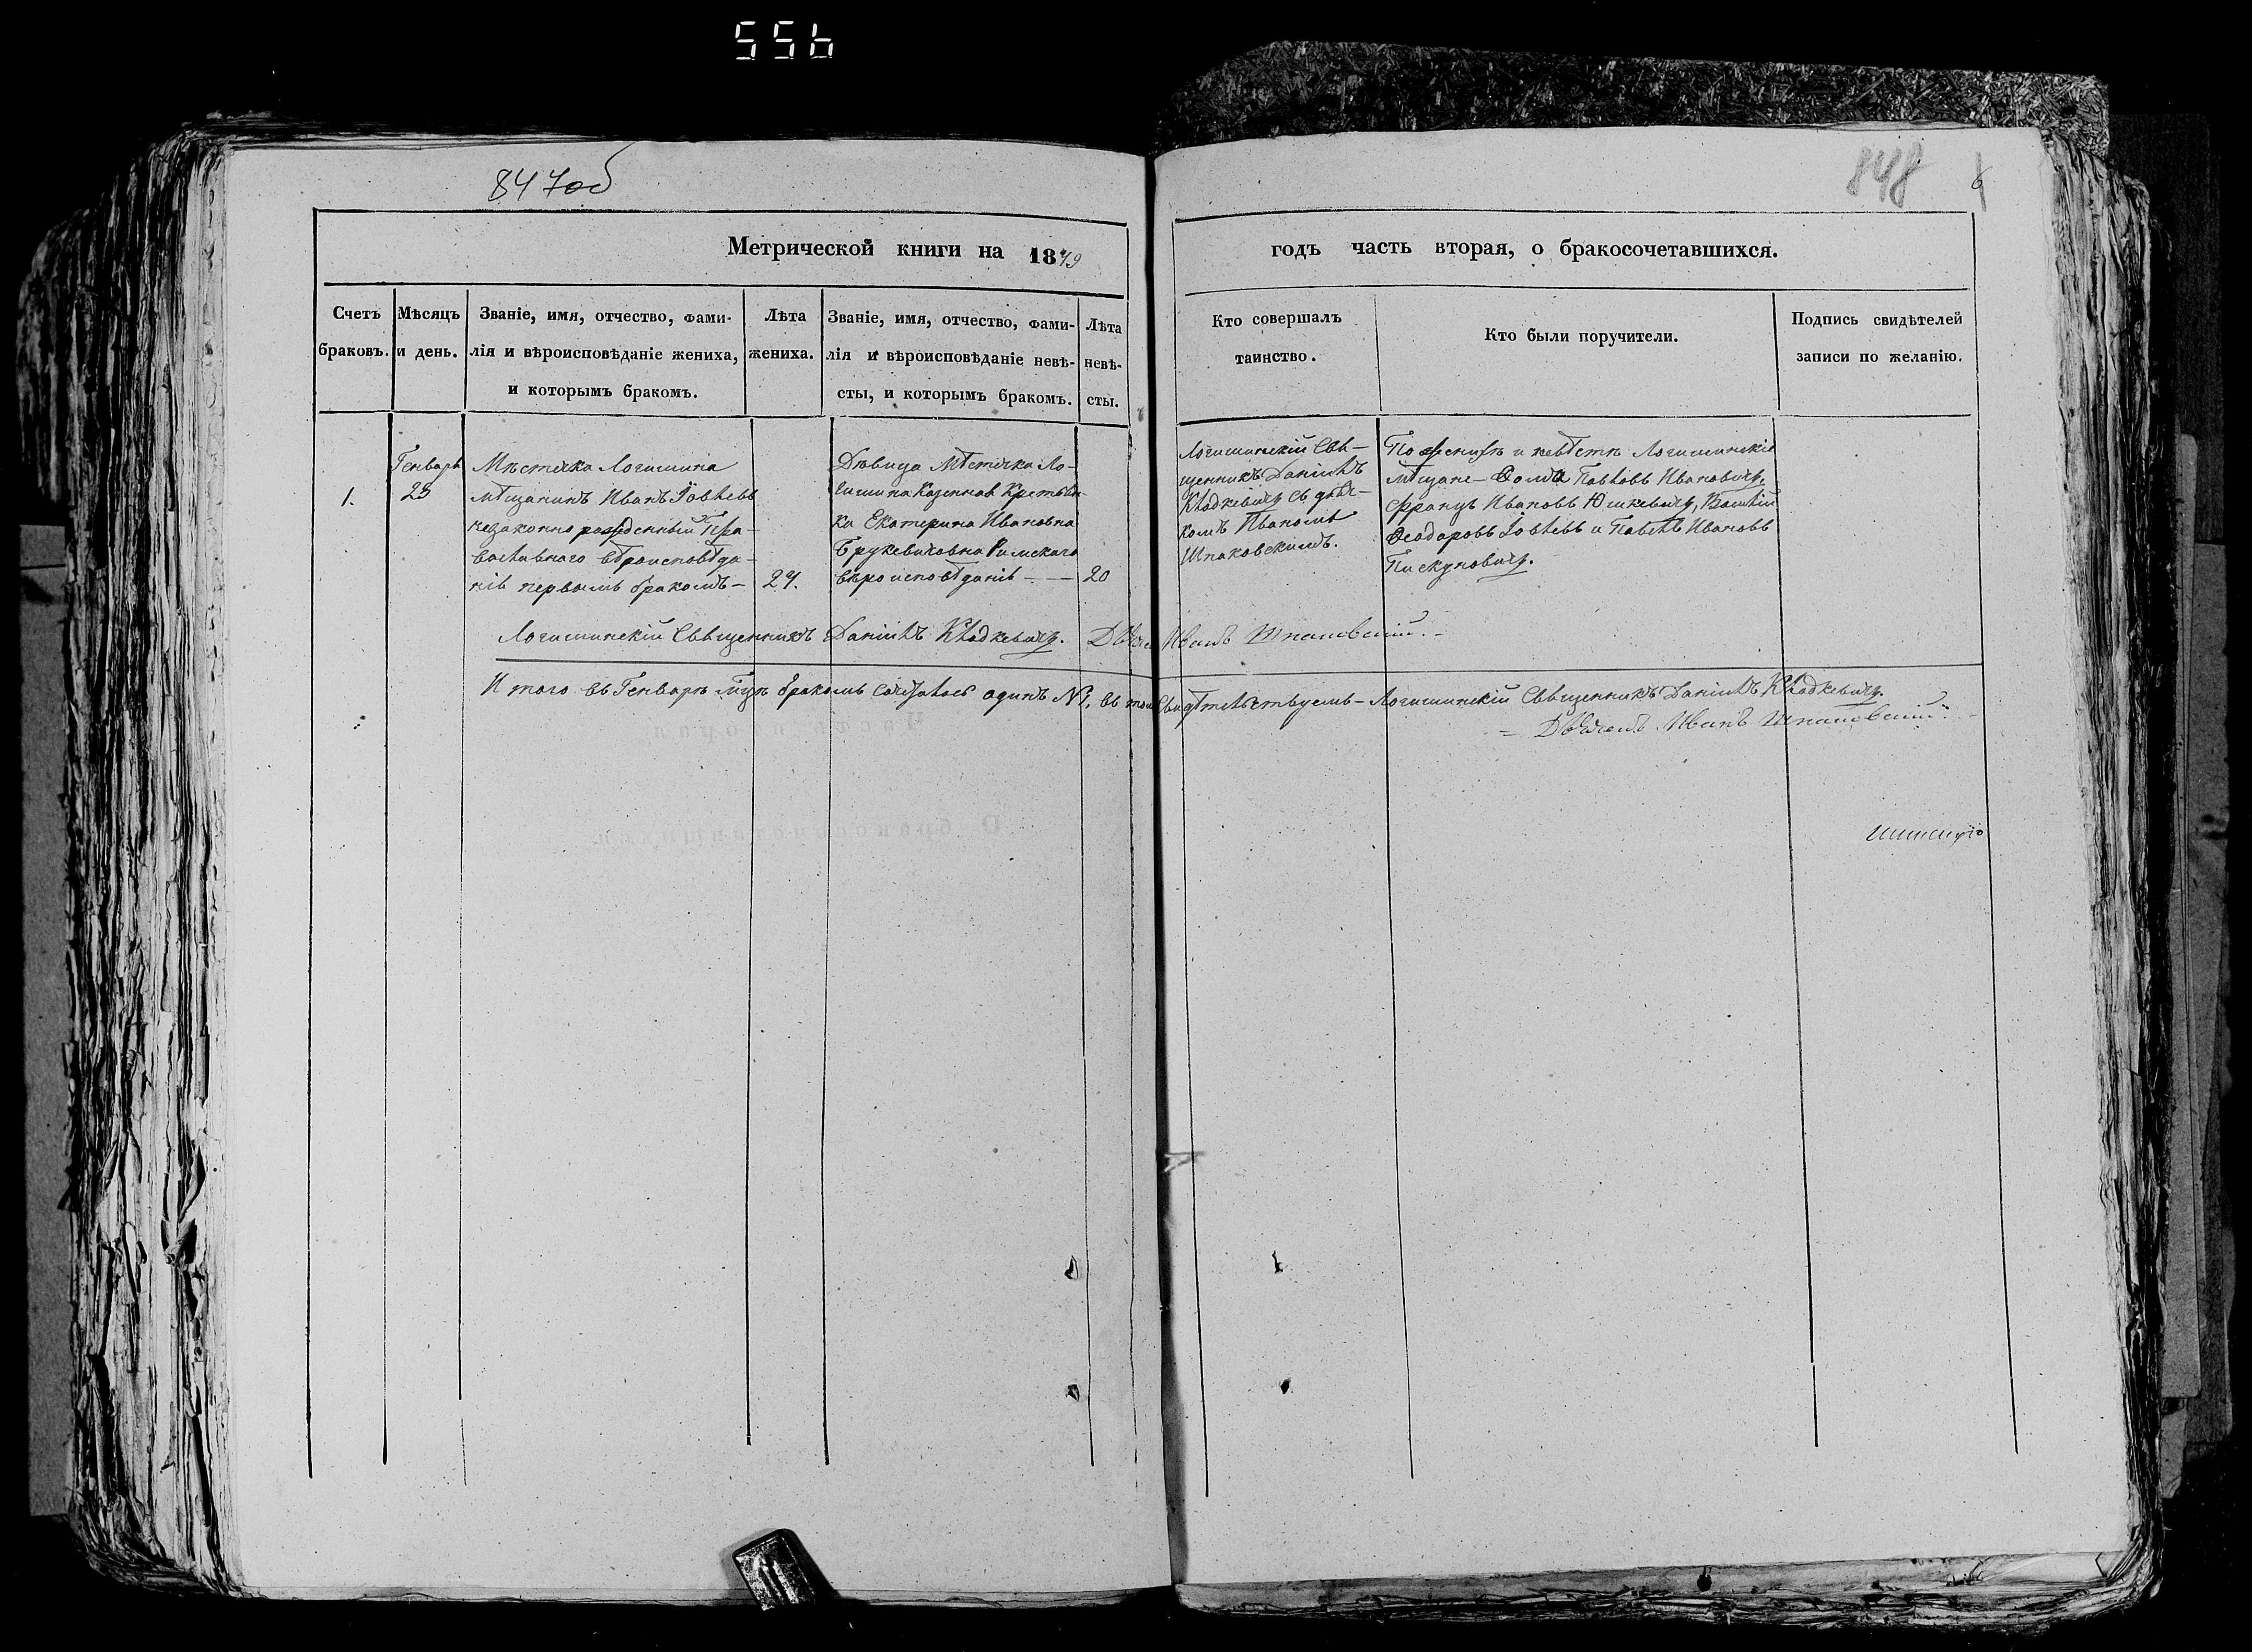 556
847об
848
6
Метрической книги на 1849
годъ часть вторая, о бракосочетавшихся.
Счетъ браковъ.
Мѣсяцъ и день.
Званіе, имя, отчество, фами-
лія и вѣроисповѣданіе жениха,
и которымъ бракомъ.
Лѣта
жениха.
Званіе, имя, отчество, фами-
лія и вѣроисповѣданіе невѣ-
сты, и которымъ бракомъ.
Лѣта
невѣ-
сты.
Кто совершалъ
таинство.
Кто были поручители.
Подпись свидѣтелей
записи по желанію.
1.
Генварь
23
Мѣстечка Логишина
мѣщанинъ Иванъ Іовлевъ
незаконно рожденный Пра-
вославнаго вѣроисповѣда-
нія первымъ бракомъ –
27.
Дѣвица Мѣстечка Ло-
гишина Казенная Крестьян-
ка Екатерина Ивановна
Брукевичовна Римскаго
вѣроисповѣданія – –
20
Логишинскій Свя-
щенникъ Даніилъ
Кладкевичъ съ дьяч-
комъ Иваномъ
Шпаковскимъ.
По женихѣ и невѣстѣ Логишинскіе
мѣщане – Фома Павловъ Ивановичъ,
Францъ Ивановъ Юшкевичъ, Василій
Феодоровъ Іовлевъ и Павелъ Ивановъ
Пискуновичъ.
Логишинскій Священникъ Даніилъ Кладкевичъ. Дьячокъ Иванъ Шпаковскій. –
Итого въ Генварѣ мцѣ бракомъ сочетался одинъ №1, въ томъ свидѣтельствуемъ – Логишинскій Священникъ Даніилъ Кладкевичъ.
– Дьячокъ Иванъ Шпаковскій.